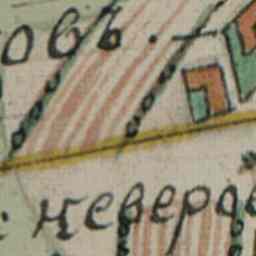 овъ.
неверов